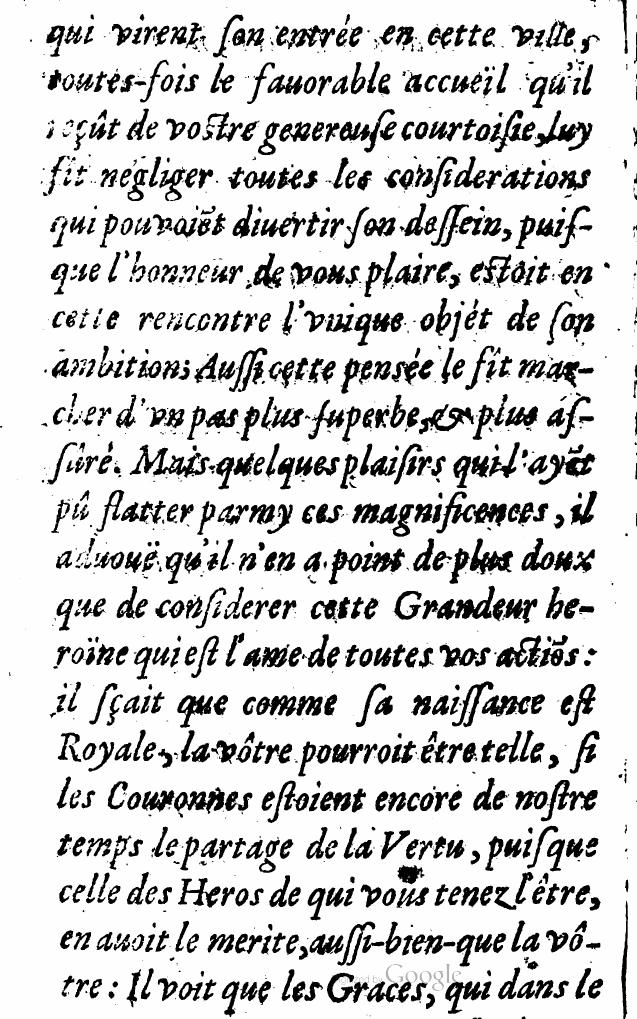 qui virent ſon entrée en cette ville,
toutes-fois le fauorable accueïl qu'il
reçût de voſtre genereuſe courtoiſie, luy
fit négliger toutes les conſiderations
qui pouvoiẽt diuertir ſon deſſein, puiſ-
que l'honneur de vous plaire, eſtoit en
cette rencontre l'vnique objét de ſon
ambition; Auſſi cette penſée le fit mar-
cher d'vn pas plus ſuperbe, & plus aſ-
ſûré. Mais quelques plaiſirs qui l'ayẽt
pû flatter parmy ces magnificences, il
aduouë qu'il n'en a point de plus doux
que de conſiderer cette Grandeur he-
roïne qui eſt l'ame de toutes vos actiõs:
il ſçait que comme ſa naiſſance eſt
Royale, la vôtre pourroit être telle, ſi
les Couronnes eſtoient encore de noſtre
temps le partage de la Vertu, puiſque
celle des Heros de qui vous tenez l'être,
en auoit le merite, auſſi-bien-que la vô-
tre: Il voit que les Graces, qui dans le
Google